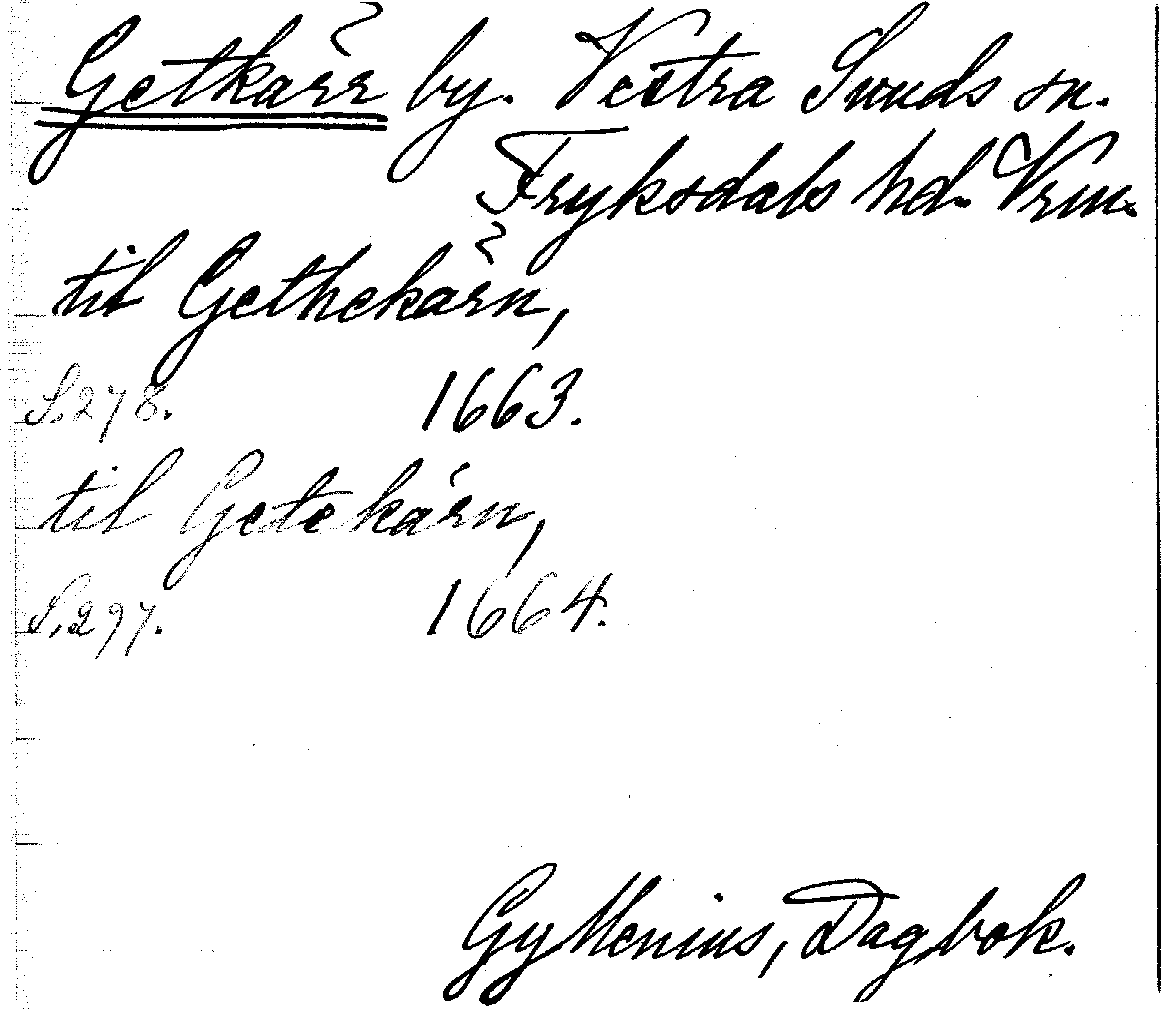 Getkärr by. Västra Sunds sn.
Fryksdals hd. Vrm.
til Gethekärn,
S. 278. 1663.
til Getekärn,
S. 297. 1664.
Gyllenius, Dagbok.